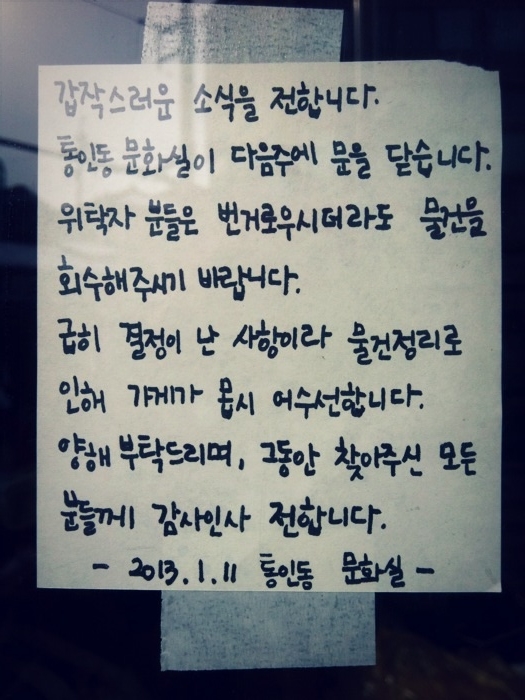 갑작스러운 소식을 전합니다.
통인동 문화실이 다음주에 문을 닫습니다.
위탁자 분들은 번거로우시더라도 물건을
회수해주시기 바랍니다.
급히 결정이 난 사항이라 물건정리로
인해 가게가 몹시 어수선합니다.
양해 부탁드리며, 그동안 찾아주신 모든
분들께 감사인사 전합니다.
- 2013.1.11 통인동 문화실 -